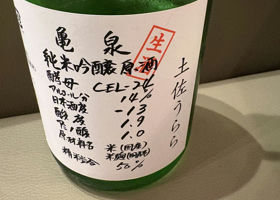 亀泉
生酒
純米吟醸原酒
酵母 CEL-24
アルコール分 14%
日本酒度 -13
酸度 1.9
アミノ酸 1.0
原材料名 米(国産)
米麹(国産米)
精米歩合 50%
土佐うらら